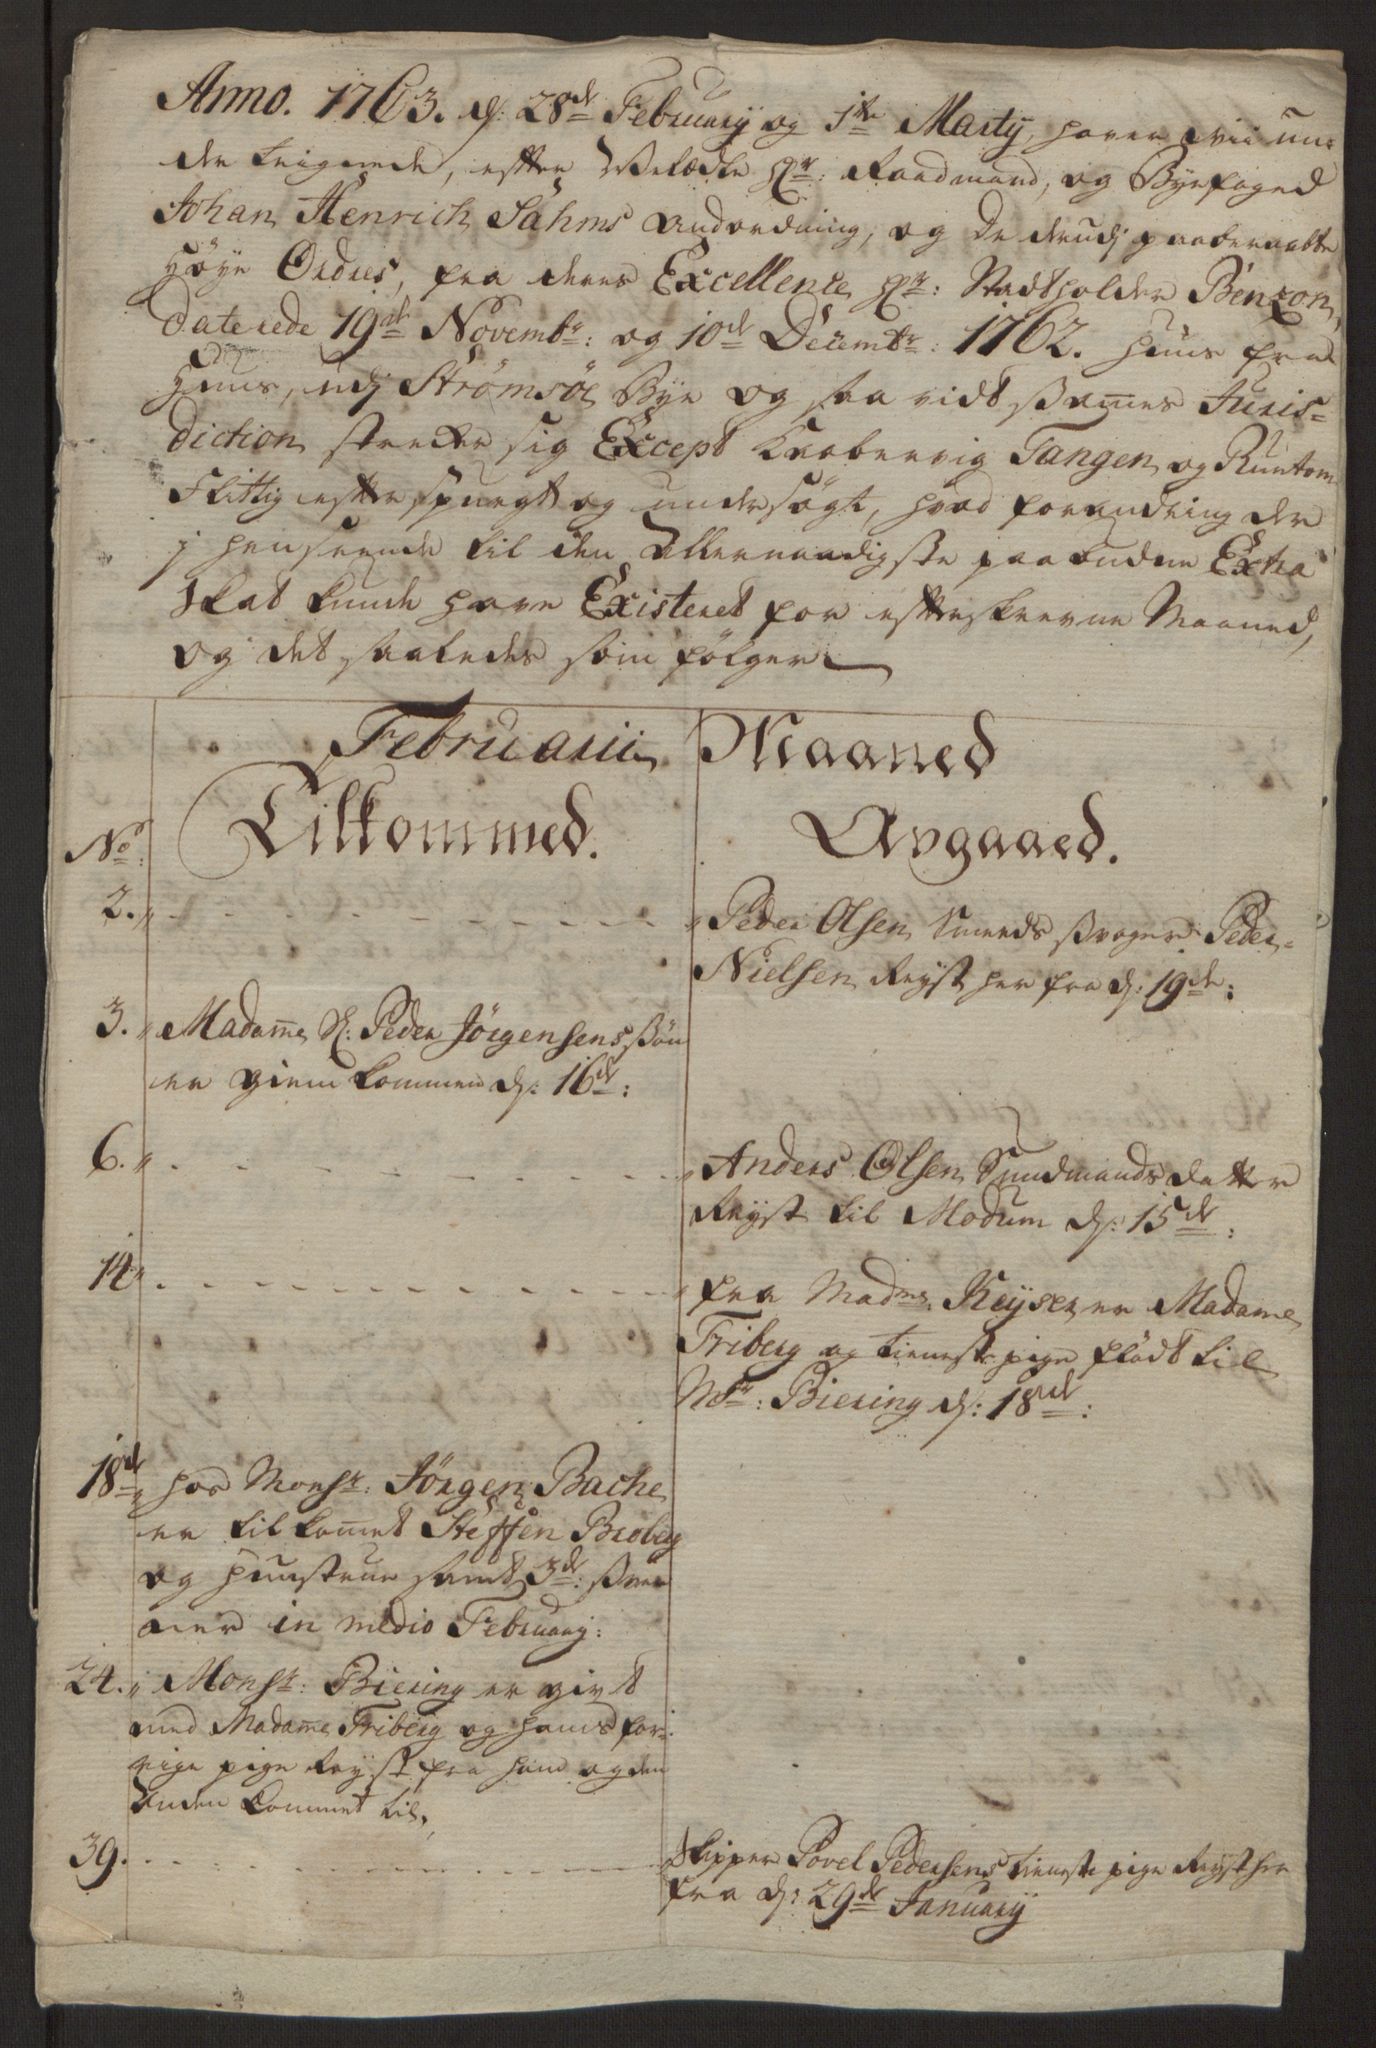 Anno. 1763. d: 28de February og 1te Martÿ, haver vii un=
dertegnede, efter Velædle Hr: Raadmand, og Byefoged
Johan Henrich Sahms Andordning, og de derudj paaberaabte
Høye Ordres, fra deres Excellence Hr: Stadtholder Benzon,
daterede 19de Novembr: og 10de Decembr: 1762. Huus fra
Huus, udj Strømsöe Bye og saa vidt sammes Juris=
diction strecker sig Except Kobbervig Tangen og Runtom
flittig efterspurgt og undersögt, hvad forandring der
j henseende til den Allernaadigste paabudne Extra
Skat kunde have Existeret for efterskrevne Maaned,
og det saaledes som fölger
Februarii Maaned
No: Tilkommed. Avgaaed.
2. Peder Olsen Smeds Svoger Peder
Nielsen Reyst her fra d: 19de:
3. Madame Sl: Peder Jörgensens Sön
er hiem kommen d: 16de:
6. Anders Olsen Sundmands datter
Reyst til Modum d: 15de:
14. fra Madme: Keÿser er Madame
Friberg og tieneste pige flödt til
Msr: Biering d: 18de:
18de hos Monsr: Jörgen Bache
er tilkomet Steffen Broberg
og Hustrue samt 3de: Svenner
in medio February:
24. Monsr: Biering er givt
med Madame Friberg og hans for=
rige pige Reyst fra ham og den
anden kommet til.
39. Skipper Povel Pedersens tieneste pige Reyst her
fra d: 29de Januarÿ